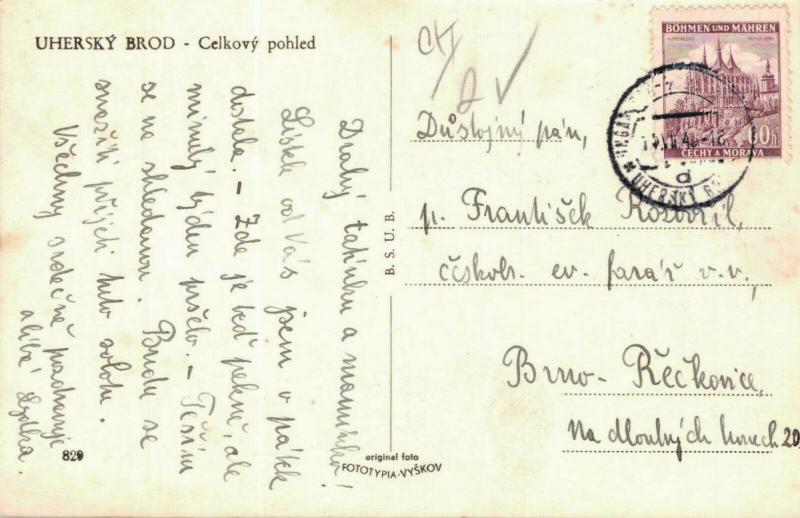 UHERSKÝ BROD - Celkový pohled
Drahý tatínku a maminko!
Lístek od Vás jsem v pátek
dostala. - Zde je teď pěkně, ale
minulý týden pršelo. - Těším
se na shledanou. Budu se
snažiti přijeti tuto sobotu.
Všechny srdečně pozdravuje
a líbá Lydka.
829
B. S. U. B.
original foto
FOTOTYPIA-VYŠKOV
BÖHMEN UND MÄHREN
60h
ČECHY A MORAVA
UHERSKÝ BROD
d
Důstojný pán,
p. František Kostořil,
čsskobr. ev. farář v. v.,
Brno - Řečkovice,
Na dlouhých honech 20